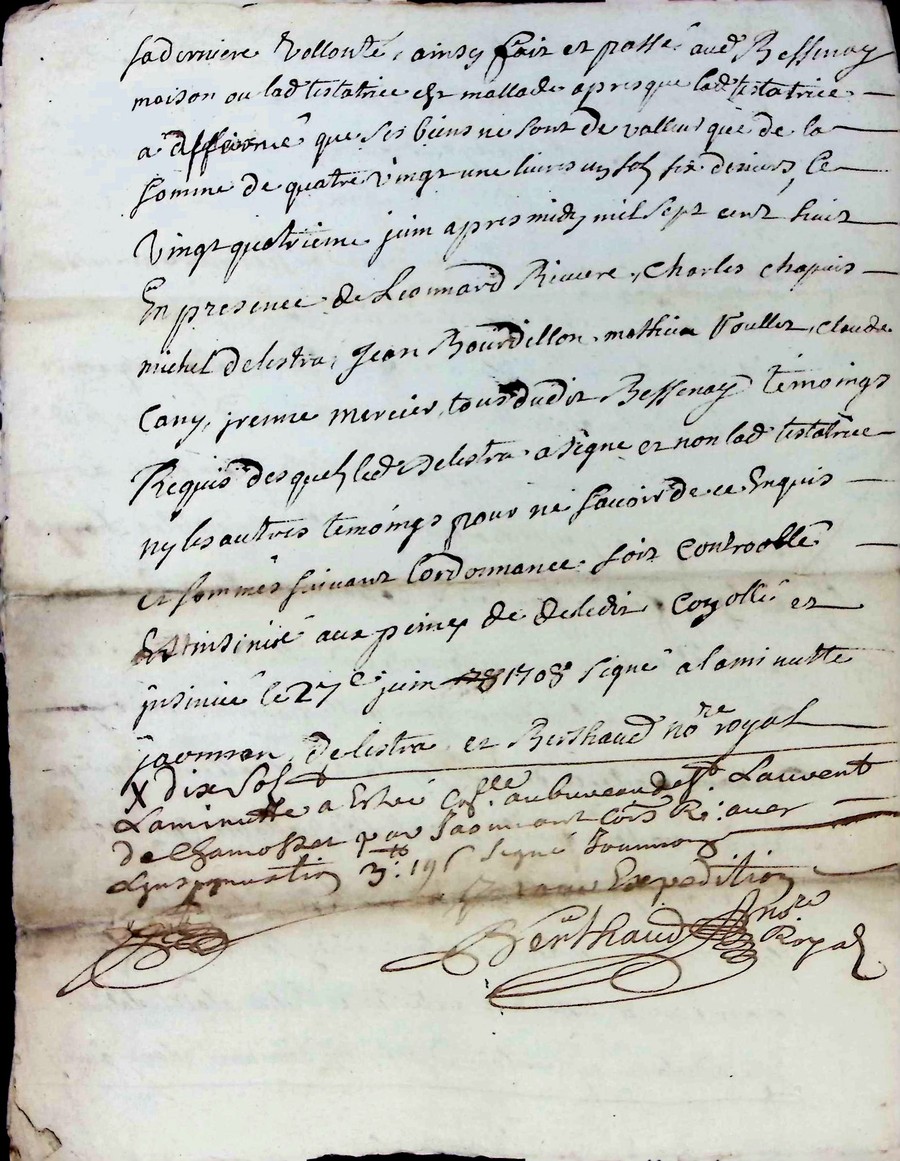 sa derniere vollonté, ainsy fait et passé aud Bessenay
maison ou lad testatrice est mallade apres que lad testatrice
a affirmé que ses biens ne sont de valleur que de la
somme de quatre vingt une livres un sol six deniers, ce
vingt quatrieme juin apres midy mil sept cent huit
En presence de Leonnard Riviere, Charles chapuis
michel delestra, Jean Bourdillon, mathieu Poullet, claude
Cany, jrenne mercier, tous dudit Bessenay témoings
Requis desquels led delestra a signe et non lad testatrice
ny les autres temoings pour ne scavoir de ce Enquis
et sommés suivant lordonnance soit controollé
Et insinué aux peines de ledit Coyollé et
jnsinué le 27e juin 1708 signé a la minutte
jaomran, delestra et Berthaud nore royal
X dix sol
La minutte a Esté Collee au bureau de St. Laurent
de Chamosset par Coms R: avec
3tt: 19s signé
Expedition
Berthaud nore
Royal